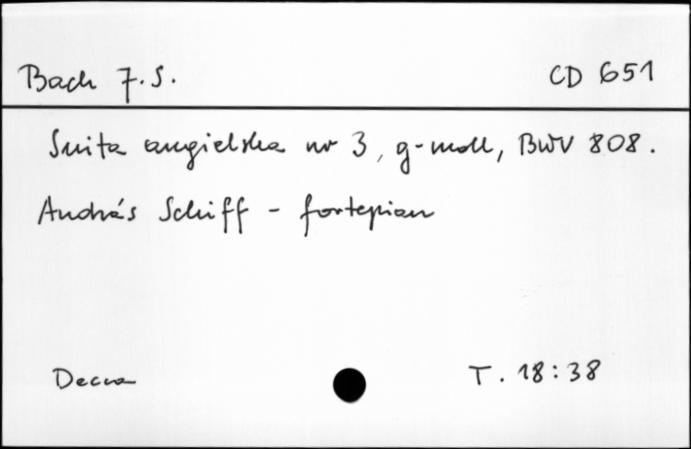 Bach J.S. CD 651
Suita angielska nr 3, g-moll, BWV 808.
András Schiff - fortepian
Decca T. 18:38